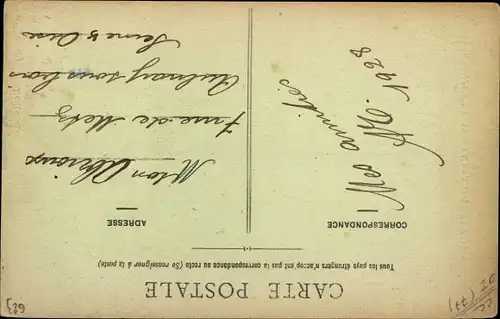 CARTE POSTALE
Tous les pays étrangers n'acceptent pas la correspondance au recto (Se renseigner à la poste)
CORRESPONDANCE
ADRESSE
Mes amitiés
1928
7 rue de Metz
Aulnay sous bois
Seine & Oise
[29]
(77)